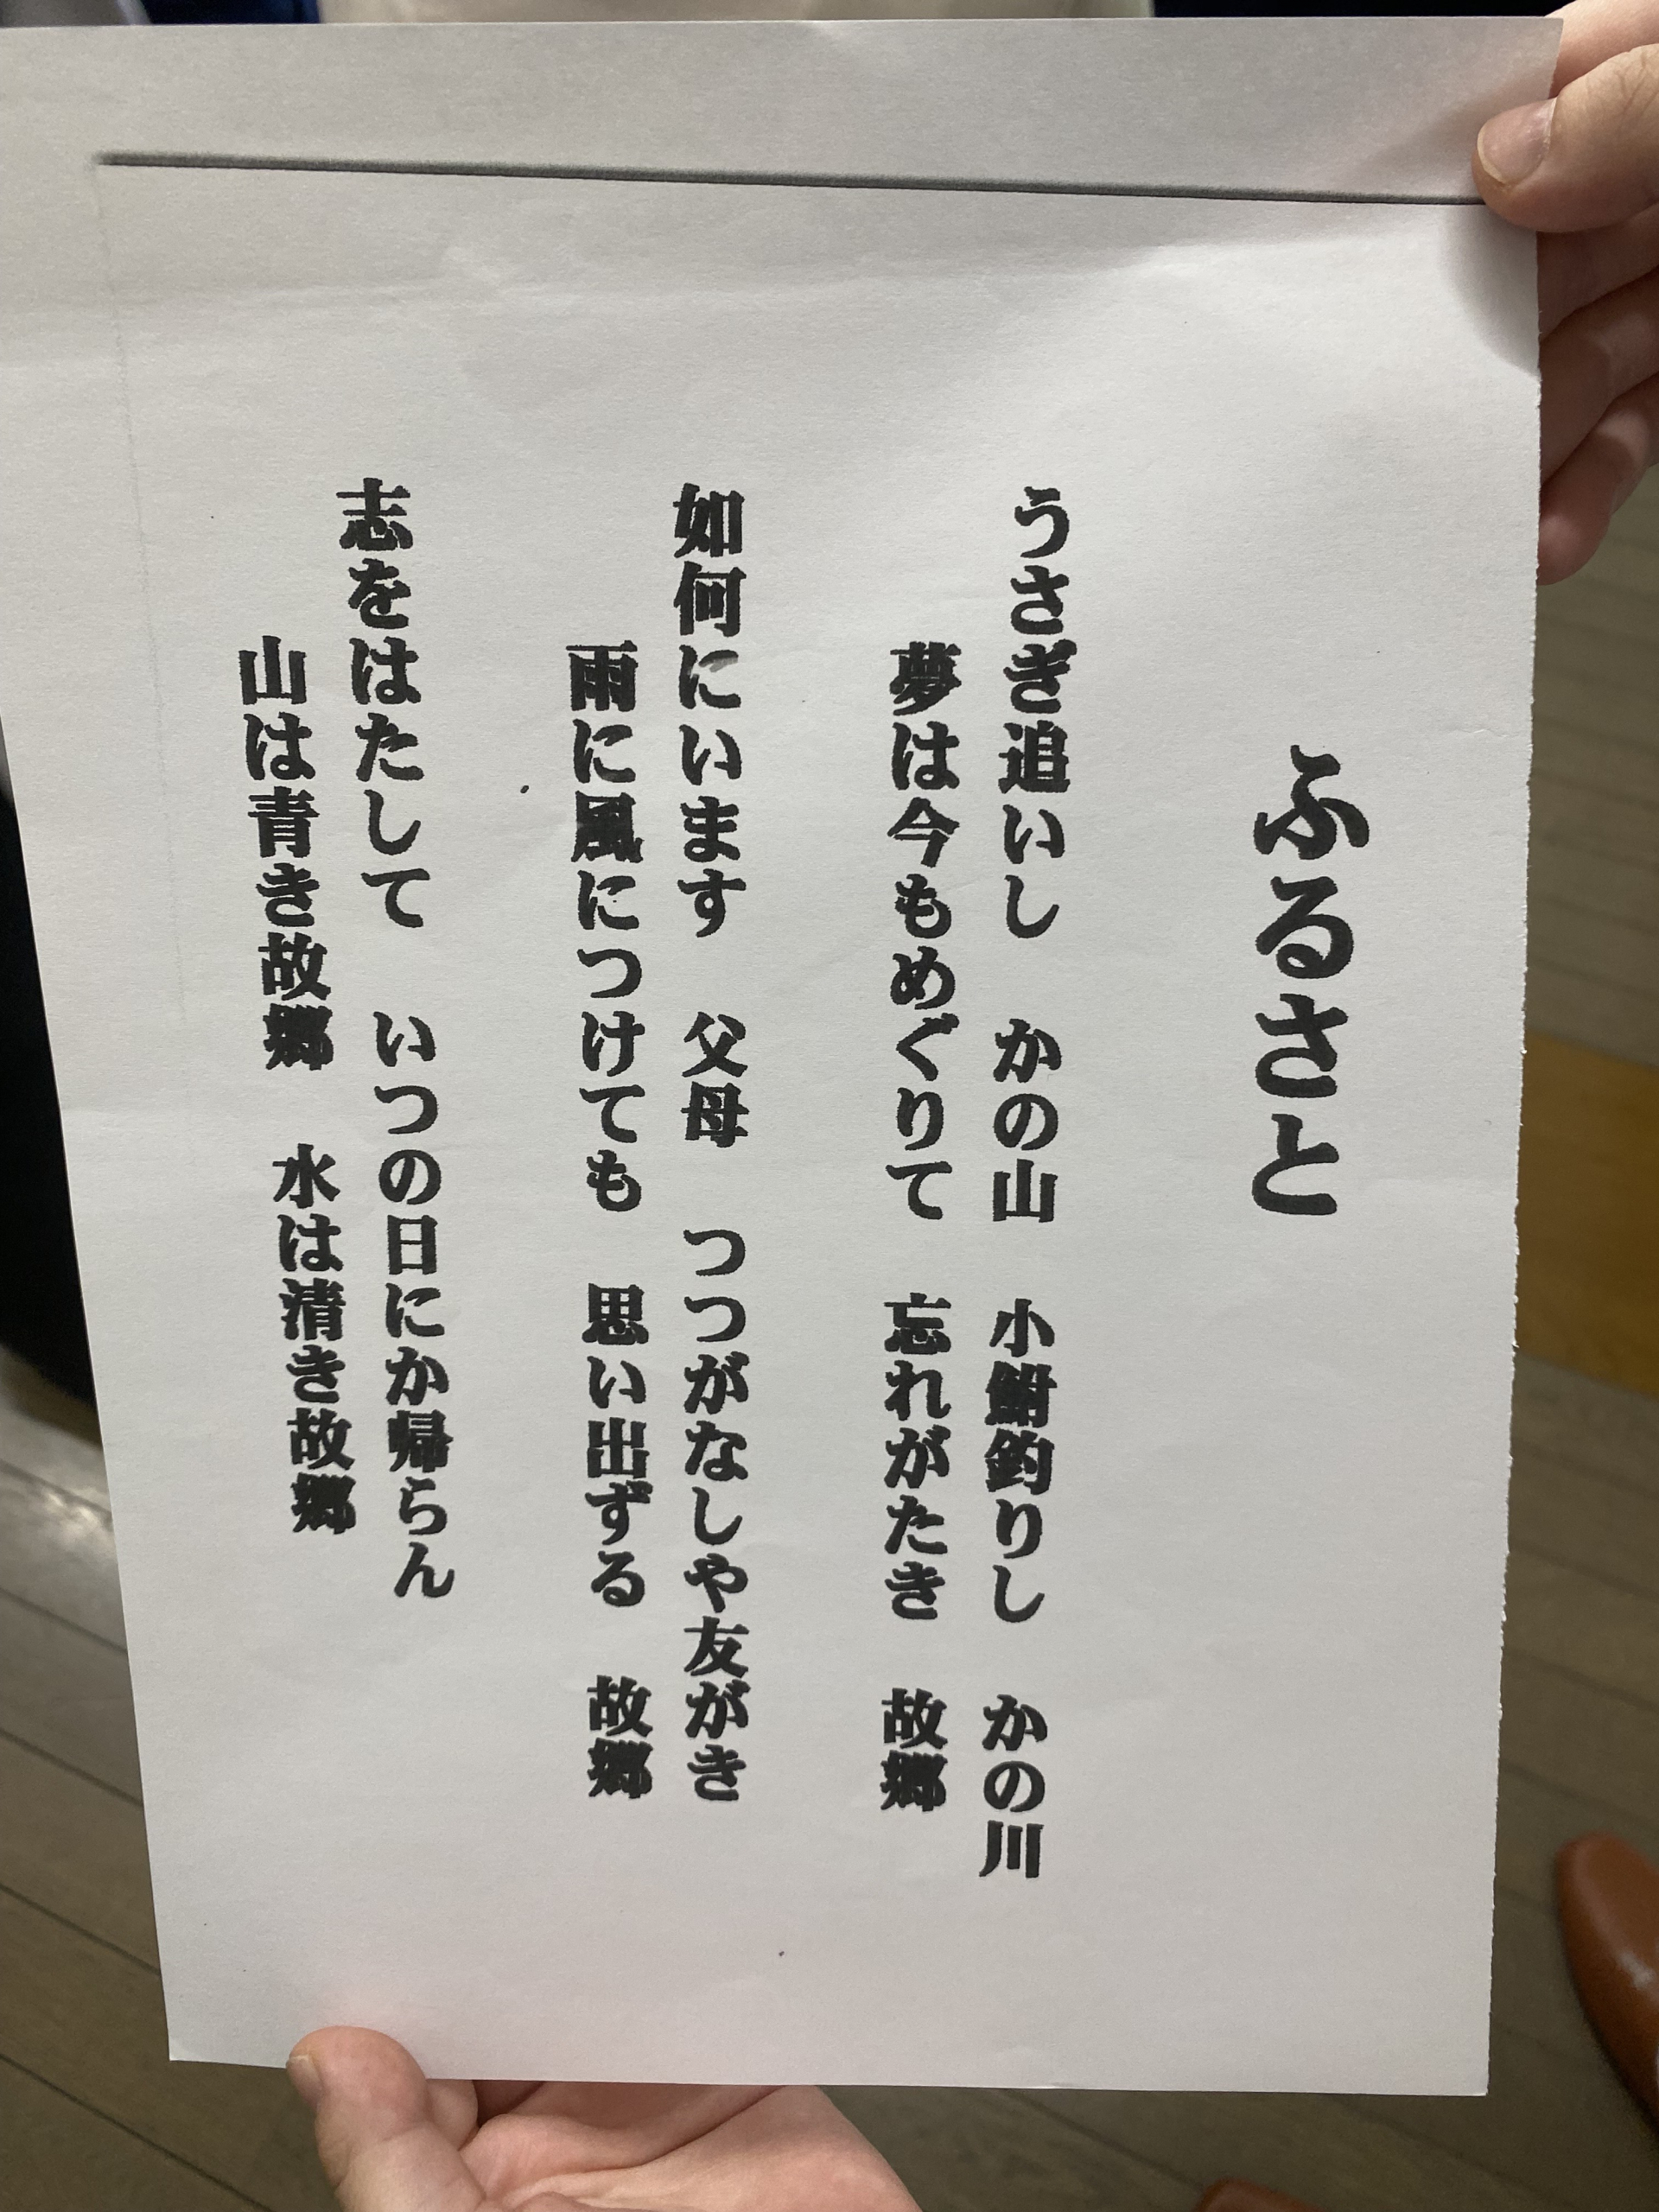 ふるさと
うさぎ追いし　かの山　小鮒釣りし　かの川
夢は今もめぐりて　忘れがたき　故郷
如何にいます　父母　つつがなしや友がき
雨に風につけても　思い出ずる　故郷
志をはたして　いつの日にか帰らん
山は青き故郷　水は清き故郷